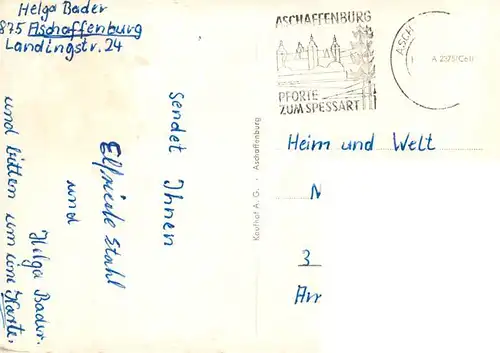 Helga Bader
875 Aschaffenburg
Landingstr. 24
sendet Ihnen
Elfriede Stahl
und
Helga Bader.
und bitten um eine Karte.
Kaufhof A. G. - Aschaffenburg
ASCHAFFENBURG
PFORTE
ZUM SPESSART
ASCH
A 2375/C61
Heim und Welt
N
3
Arr